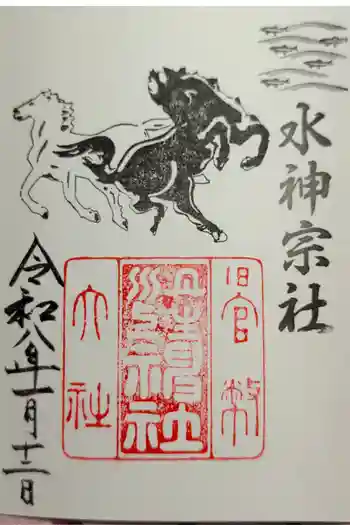 水神宗社
旧官幣
大社
令和八年一月十二日